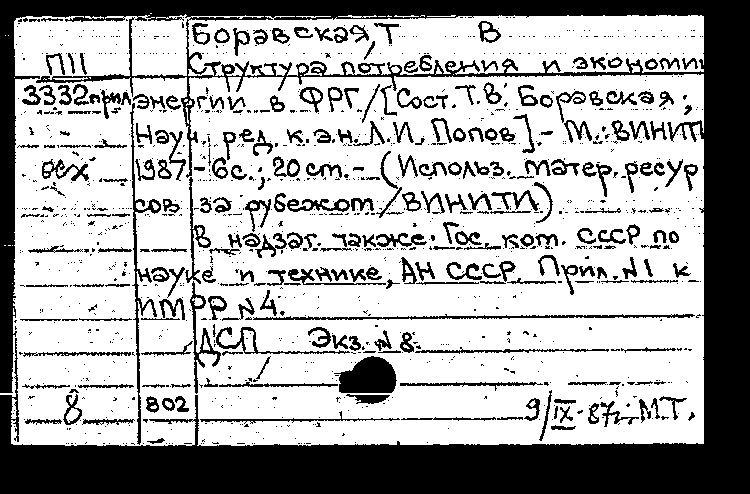 Боравская, Т В
П11 Структура потребления и экономии
3332прил энергии в ФРГ/[Сост. Т.В. Боравская;
Науч. ред. к.э.н. Л.И. Попов].- М.: ВИНИТИ
1987.- 6с.; 20 cm.- (Использ. матер. ресур-
сов за рубежом/ВИНИТИ).
В надзаг. также: Гос. ком. СССР по
науке и технике, АН СССР. Прил. N1 к
ИМРР N4.
ДСП Экз. N 8.
8 802 9/IX-87г. М.Т.